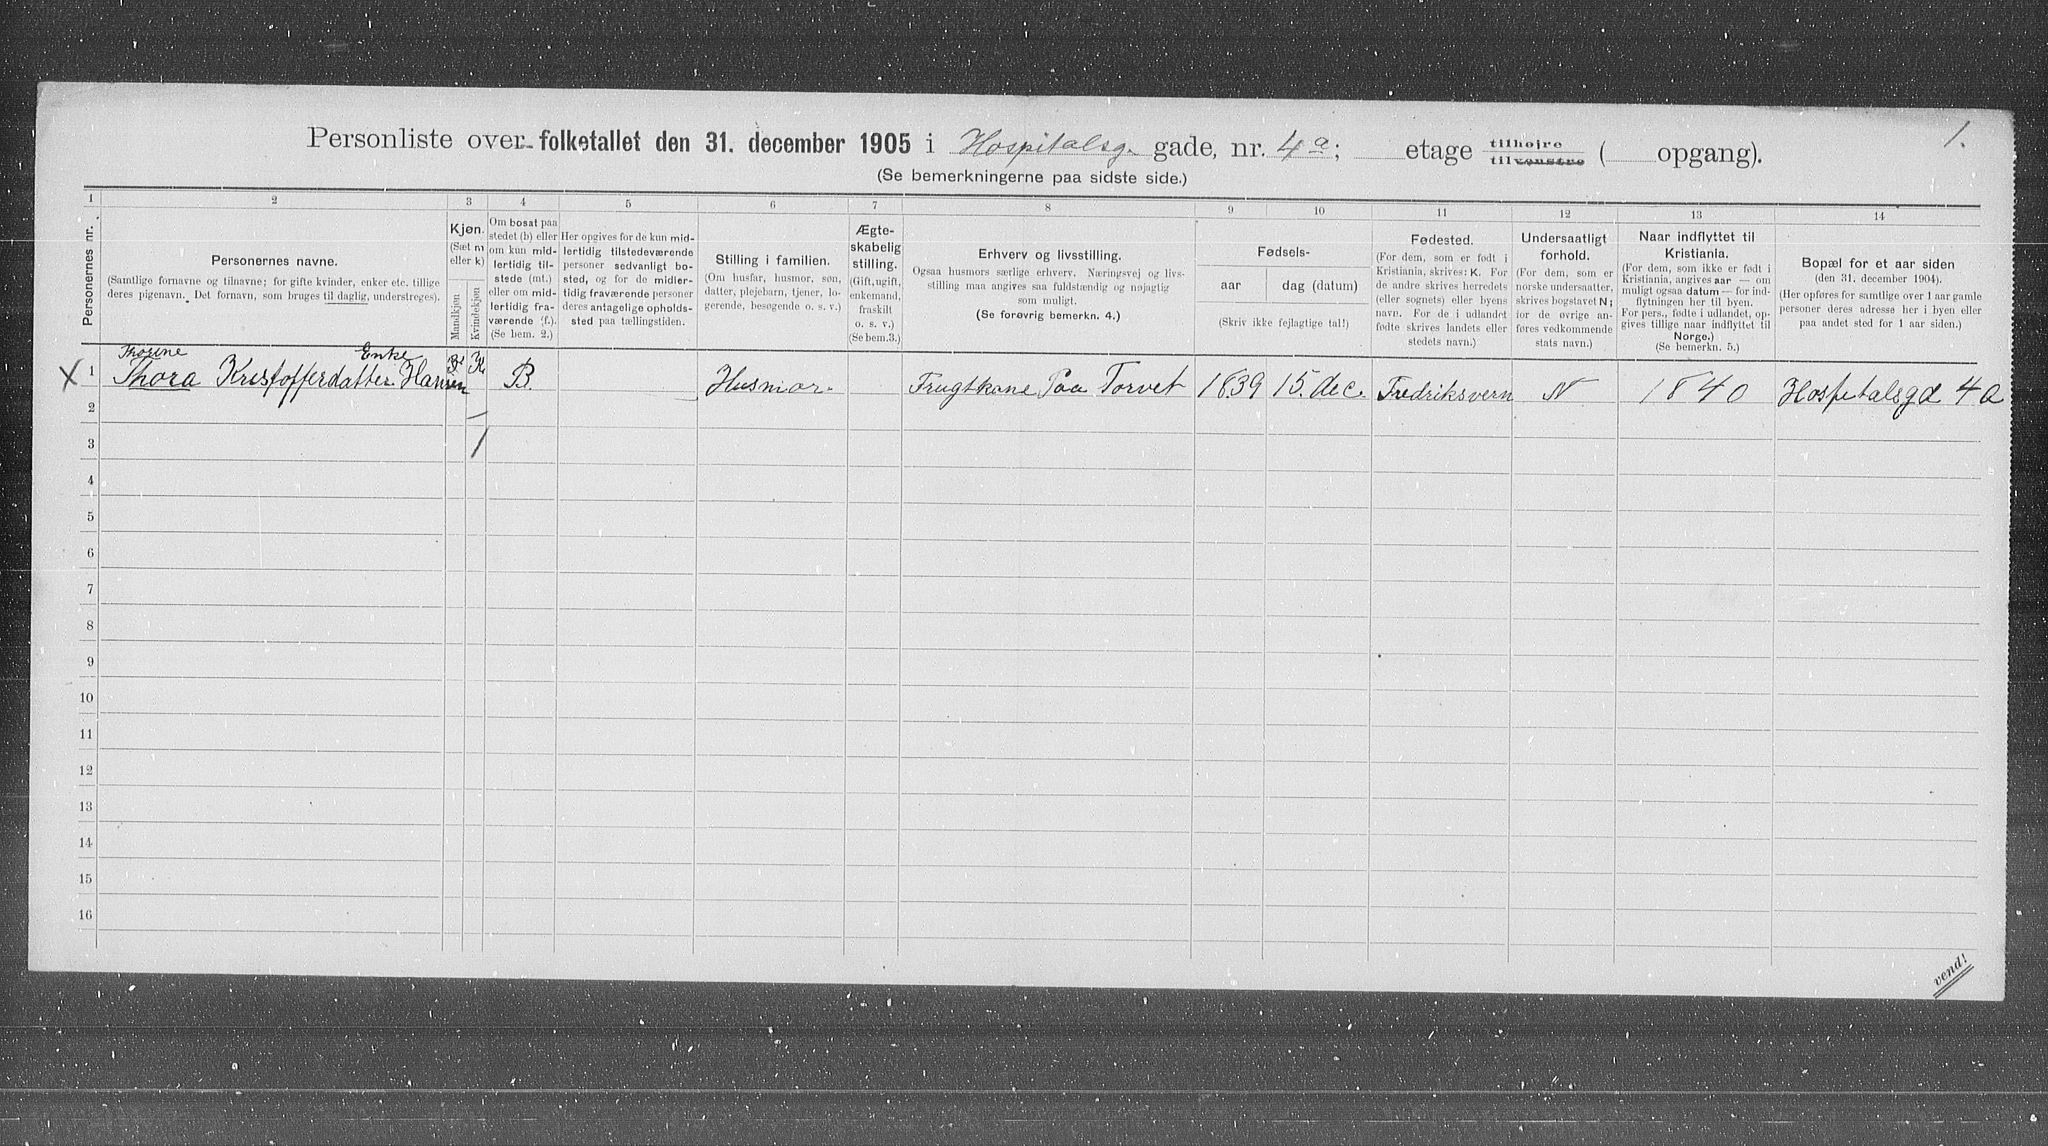 1.
Personliste over folketallet den 31. december 1905 i Hospitalsg. gade, nr. 4a; etage tilhøire tilvenstre ( opgang).
(Se bemerkningerne paa sidste side.)
1 2 3 4 5 6 7 8 9 10 11 12 13 14
Personernes nr.
Personernes navne.
(Samtlige fornavne og tilnavne; for gifte kvinder, enker etc. tillige
deres pigenavn. Det fornavn, som bruges til daglig, understreges).
Kjøn.
(Sæt m
eller k)
Mandkjøn
Kvindekjøn
Om bosat paa
stedet (b) eller
om kun mid-
lertidig til-
stede (mt.)
eller om mid-
lertidig fra-
værende (f.).
(Se bem. 2.)
Her opgives for de kun mid-
lertidig tilstedeværende
personer sedvanligt bo-
sted, og for de midler-
tidig fraværende personer
deres antagelige opholds-
sted paa tællingstiden.
Stilling i familien.
(Om husfar, husmor, søn,
datter, plejebarn, tjener, lo-
gerende, besøgende o. s. v.)
Ægte-
skabelig
stilling.
(Gift, ugift,
enkemand,
fraskilt
o. s. v.)
(Se bem.3.)
Erhverv og livsstilling.
Ogsaa husmors særlige erhverv. Næringsvej og livs-
stilling maa angives saa fuldstændig og nøjagtig
som muligt.
(Se forøvrig bemerkn. 4.)
Fødsels-
aar
dag (datum)
(Skriv ikke fejlagtige tal!)
Fødested.
(For dem, som er født i
Kristiania, skrives: K. For
de andre skrives herredets
(eller sognets) eller byens
navn. For de i udlandet
fødte skrives landets eller
stedets navn.)
Undersaatligt
forhold.
(For dem, som er
norske undersaatter,
skrives bogstavet N;
for de øvrige an-
føres vedkommende
stats navn.)
Naar indflyttet til
Kristiania.
(For dem, som ikke er født i
Kristiania, angives aar — om
muligt ogsaa datum — for ind-
flytningen her til byen.
For pers., fødte i udlandet, op-
gives tillige naar indflyttet til
Norge.)
(Se bemerkn. 5.)
Bopæl for et aar siden
(den 31. december 1904).
(Her opføres for samtlige over 1 aar gamle
personer deres adresse her i byen eller
paa andet sted for 1 aar siden.)
Thorine Enke
X 1 Thora Kristofferdatter Hansen K B. Husmor Frugtkone Paa Torvet 1839 15. dec. Fredriksvern N 1840 Hospetalsgd 4a
2
3
4
5
6
7
8
9
10
11
12
13
14
15
16
vend!